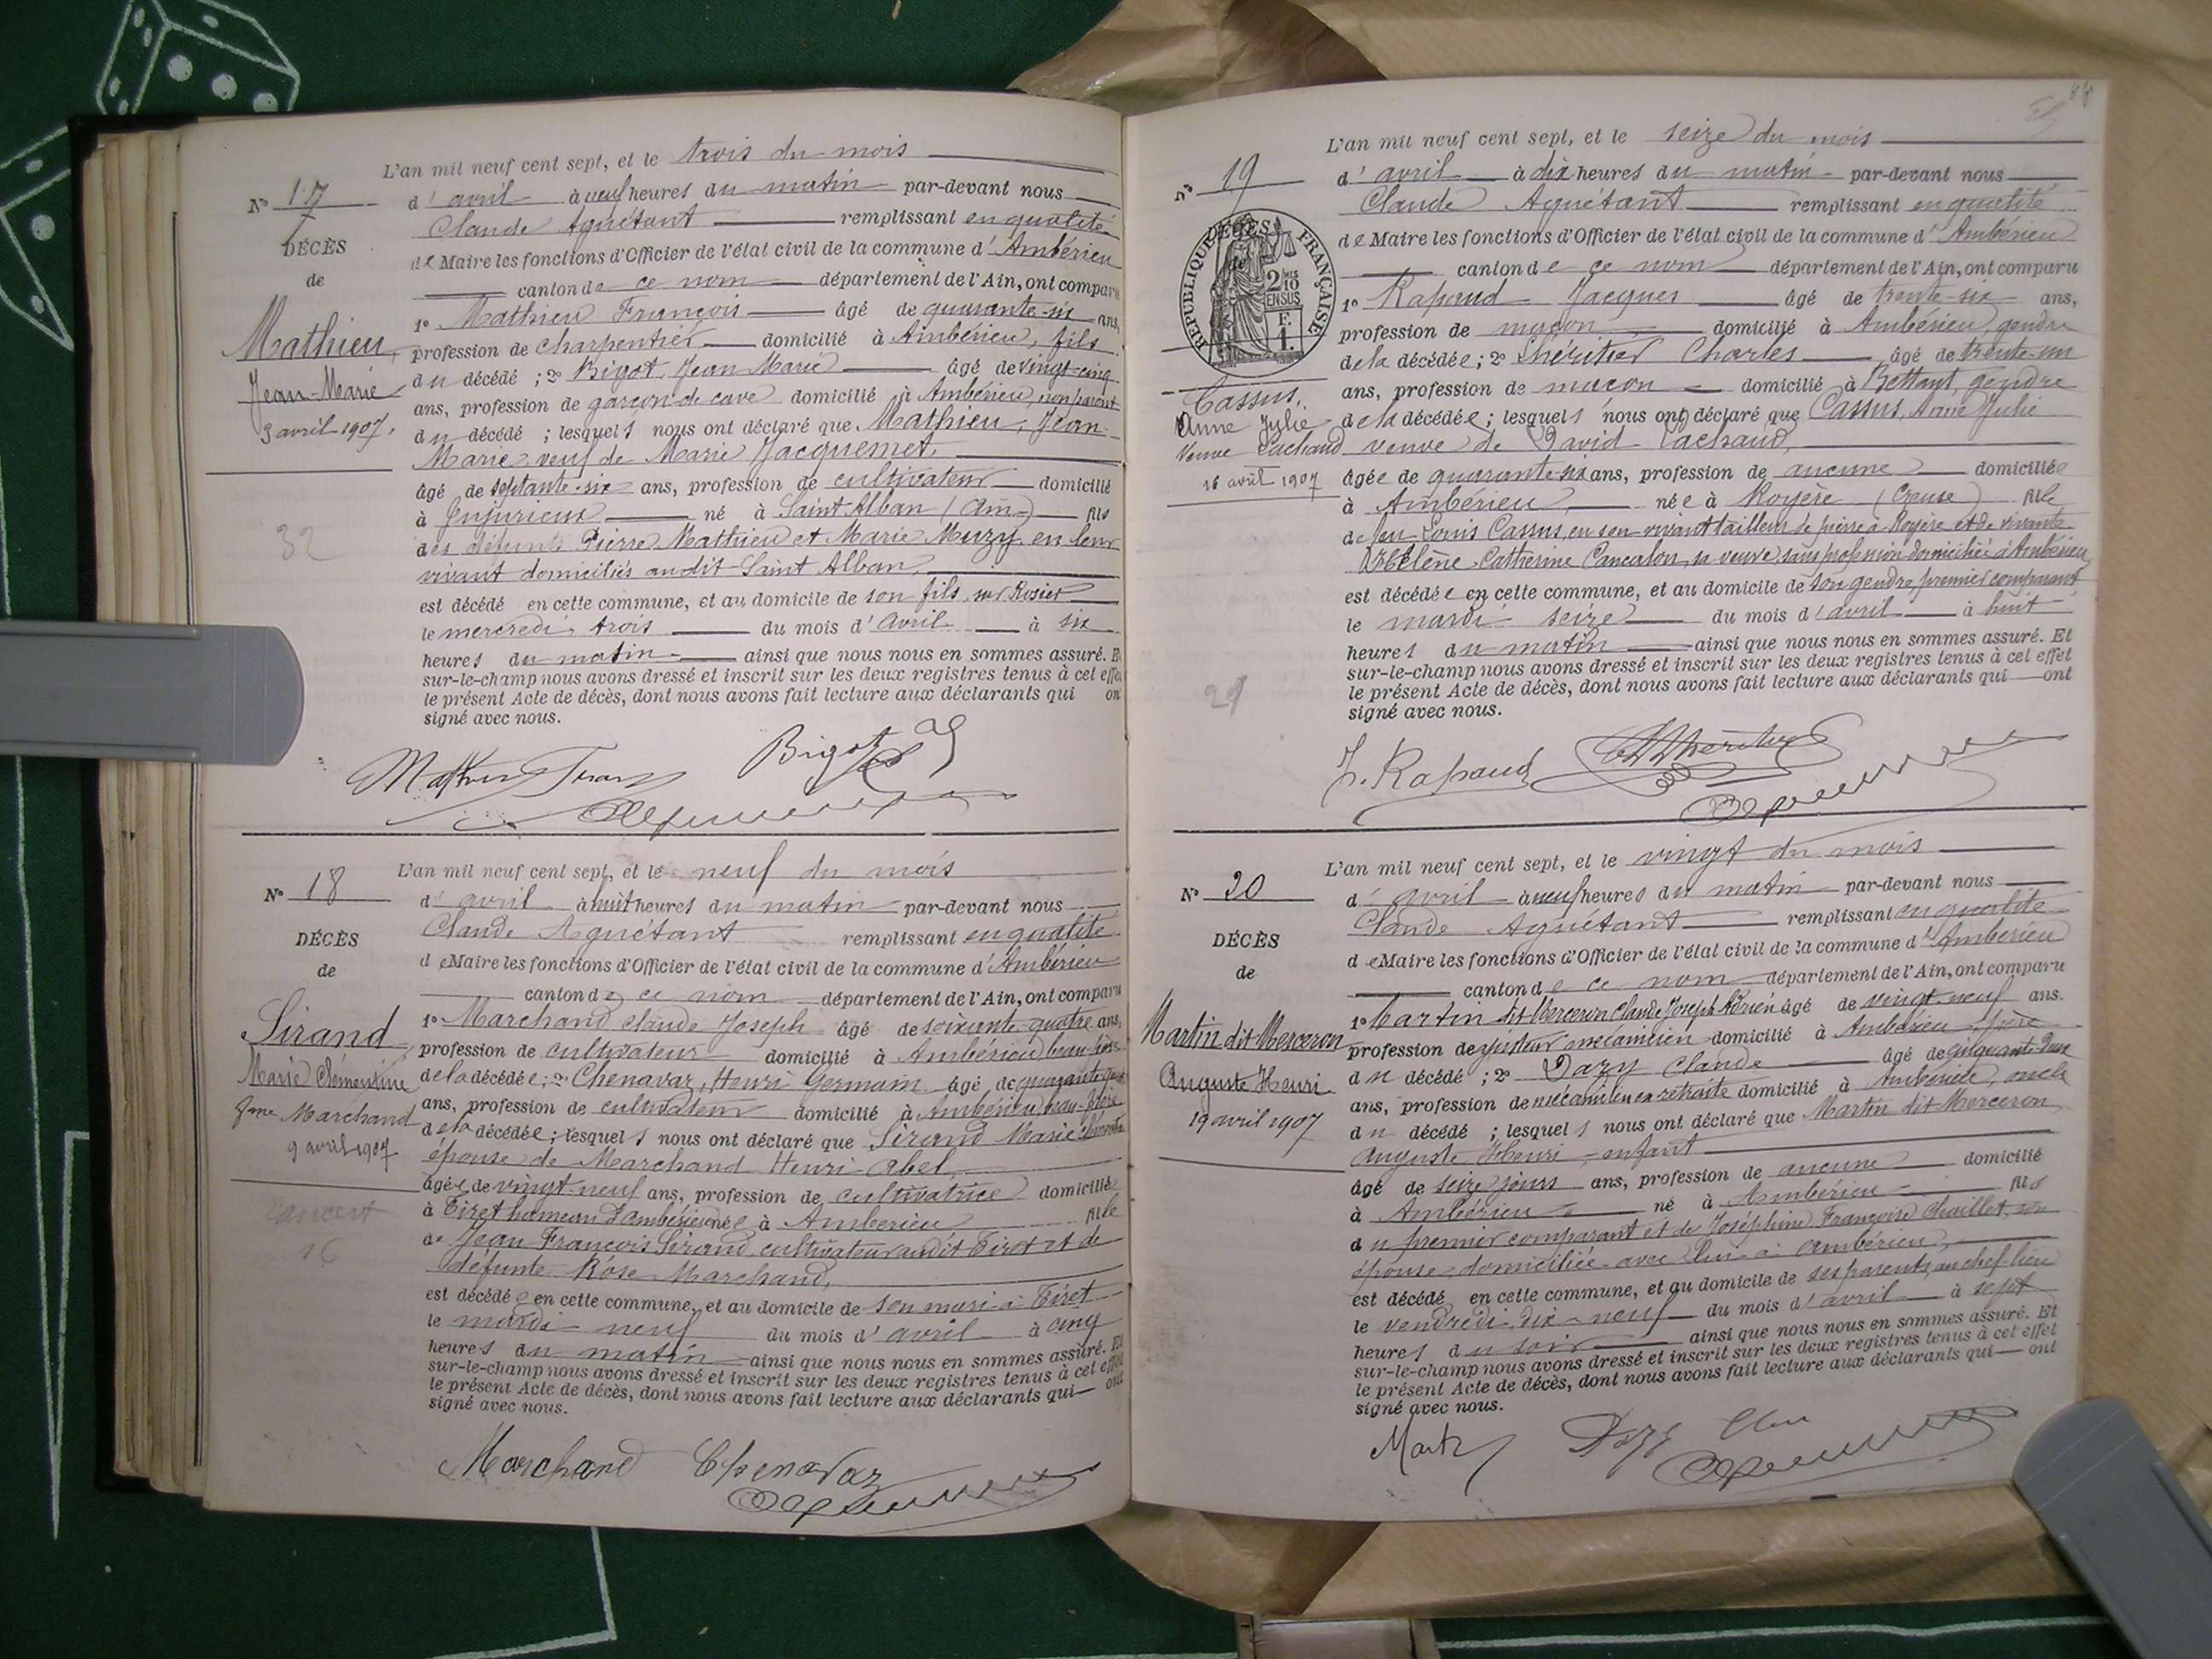 L'an mil neuf cent sept, et le trois du mois
N° 17
d'avril à neuf heures du matin par-devant nous
Claude Aguétant remplissant en qualité
DÉCÈS
de Maire les fonctions d'Officier de l'état civil de la commune d'Ambérieu
de
canton de ce nom département de l'Ain, ont comparu
1° Mathieu François âgé de quarante-six ans,
Mathieu,
profession de charpentier domicilié à Ambérieu, fils
Jean-Marie
du décédé ; 2° Bigot, Jean Marie âgé de vingt-cinq
ans, profession de garçon de cave domicilié à Ambérieu, non parent
3 avril 1907.
du décédé ; lesquels nous ont déclaré que Mathieu, Jean-
Marie, veuf de Marie Jacquemet,
âgé de septante-six ans, profession de cultivateur domicilié
à Jujurieux né à Saint Alban (Ain) fils
32
des défunts Pierre Mathieu et Marie Muzy, en leur
vivant domiciliés audit Saint Alban,
est décédé en cette commune, et au domicile de son fils, sur Rosier
le mercredi trois du mois d'avril à six
heures du matin ainsi que nous nous en sommes assuré. Et
sur-le-champ nous avons dressé et inscrit sur les deux registres tenus à cet effet
le présent Acte de décès, dont nous avons fait lecture aux déclarants qui ont
signé avec nous.
Bigot
L'an mil neuf cent sept, et le neuf du mois
N° 18
d'avril à huit heures du matin par-devant nous
Claude Aguétant remplissant en qualité
DÉCÈS
de Maire les fonctions d'Officier de l'état civil de la commune d'Ambérieu
de
canton de ce nom département de l'Ain, ont comparu
1° Marchand Claude Joseph âgé de soixante-quatre ans,
Sirand
profession de cultivateur domicilié à Ambérieu, beau-père
Marie Clémentine
de la décédée ; 2° Chenavaz, Henri Germain âgé de quarante
fme Marchand
ans, profession de cultivateur domicilié à Ambérieu, beau-frère
9 avril 1907
de la décédée ; lesquels nous ont déclaré que Sirand Marie Clémentine
épouse de Marchand Henri Abel,
âgée de vingt-neuf ans, profession de cultivatrice domiciliée
cancert
à Tiret hameau d'Ambérieu née à Amberieu fille
16
de Jean François Sirand, cultivateur audit Tiret et de
défunte Rose Marchand,
est décédée en cette commune, et au domicile de son mari à Tiret
le mardi neuf du mois d'avril à cinq
heures du matin ainsi que nous nous en sommes assuré. Et
sur-le-champ nous avons dressé et inscrit sur les deux registres tenus à cet effet
le présent Acte de décès, dont nous avons fait lecture aux déclarants qui ont
signé avec nous.
Marchand Chenavaz
L'an mil neuf cent sept, et le seize du mois
N° 19
d'avril à dix heures du matin par-devant nous
Claude Aguétant remplissant en qualité
DÉCÈS
de
RÉPUBLIQUE FRANÇAISE
2/10 EN SUS
F. 1.
de Maire les fonctions d'Officier de l'état civil de la commune d'Ambérieu
canton de ce nom département de l'Ain, ont comparu
1° Rapaud Jacques âgé de trente-six ans,
profession de maçon domicilié à Ambérieu, gendre
de la décédée ; 2° Lhéritier Charles âgé de trente-un
Cassus,
ans, profession de maçon domicilié à Bettant, gendre
Anne Julie
de la décédée ; lesquels nous ont déclaré que Cassus, Anne Julie
Veuve Lachaud
veuve de David Lachaud,
16 avril 1907
âgée de quarante-six ans, profession de aucune domiciliée
à Ambérieu née à Royère (Creuse) fille
de feu Louis Cassus, en son vivant tailleur de pierre à Royère et de vivante
Hélène Catherine Cancalon, sa veuve, sans profession domiciliée à Ambérieu,
est décédée en cette commune, et au domicile de son gendre, premier comparant
le mardi seize du mois d'avril à huit
heures du matin ainsi que nous nous en sommes assuré. Et
sur-le-champ nous avons dressé et inscrit sur les deux registres tenus à cet effet
le présent Acte de décès, dont nous avons fait lecture aux déclarants qui ont
signé avec nous.
J. Rapaud Lhéritier
L'an mil neuf cent sept, et le vingt du mois
N° 20
d'avril à neuf heures du matin par-devant nous
Claude Aguétant remplissant en qualité
DÉCÈS
de Maire les fonctions d'Officier de l'état civil de la commune d'Amberieu
de
canton de ce nom département de l'Ain, ont comparu
1° Martin dit Merceron Claude Joseph Adrien âgé de vingt-neuf ans.
Martin dit Merceron
profession de ajusteur mécanicien domicilié à Ambérieu, père
Auguste Henri
du décédé ; 2° Dazy Claude âgé de cinquante-deux
ans, profession de mécanicien en retraite domicilié à Ambérieu, oncle
19 avril 1907
du décédé ; lesquels nous ont déclaré que Martin dit Merceron
Auguste Henri, enfant
âgé de seize jours ans, profession de aucune domicilié
à Ambérieu né à Ambérieu fils
du premier comparant et de Joséphine Françoise Chaillet, son
épouse, domiciliée avec lui à Ambérieu,
est décédé en cette commune, et au domicile de ses parents, au chef-lieu
le vendredi, dix-neuf du mois d'avril à sept
heures du soir ainsi que nous nous en sommes assuré. Et
sur-le-champ nous avons dressé et inscrit sur les deux registres tenus à cet effet
le présent Acte de décès, dont nous avons fait lecture aux déclarants qui ont
signé avec nous.